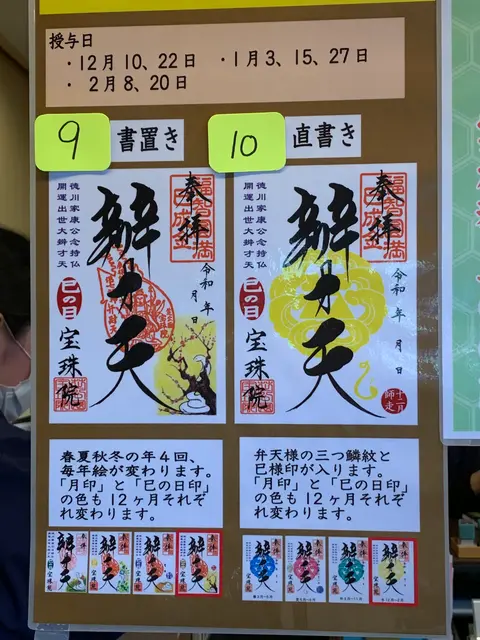 授与日
・12月10、22日 ・1月3、15、27日
・ 2月8、20日
9
書置き
10
直書き
奉拝
徳川家康公念持仏
開運出世大辨才天
辨才天
令和 年 月 日
巳の日
宝珠院
奉拝
徳川家康公念持仏
開運出世大辨才天
辨才天
令和 年 月 日
巳の日
宝珠院
十二月
師走
春夏秋冬の年4回、
毎年絵が変わります。
「月印」と「巳の日印」
の色も12ヶ月それぞ
れ変わります。
弁天様の三つ鱗紋と
巳様印が入ります。
「月印」と「巳の日印」
の色も12ヶ月それぞ
れ変わります。